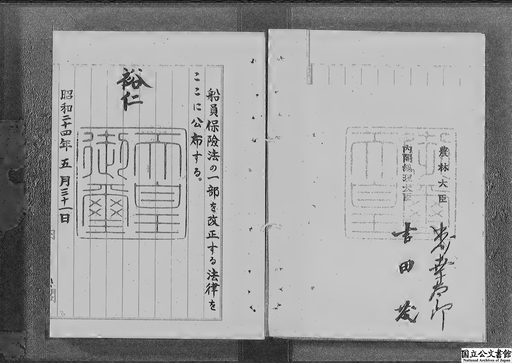 船員保険法の一部を改正する法律を
ここに公布する。
裕仁
天皇
御璽
昭和二十四年五月三十一日
内閣総理大臣
吉田茂
農林大臣
国立公文書館
National Archives of Japan